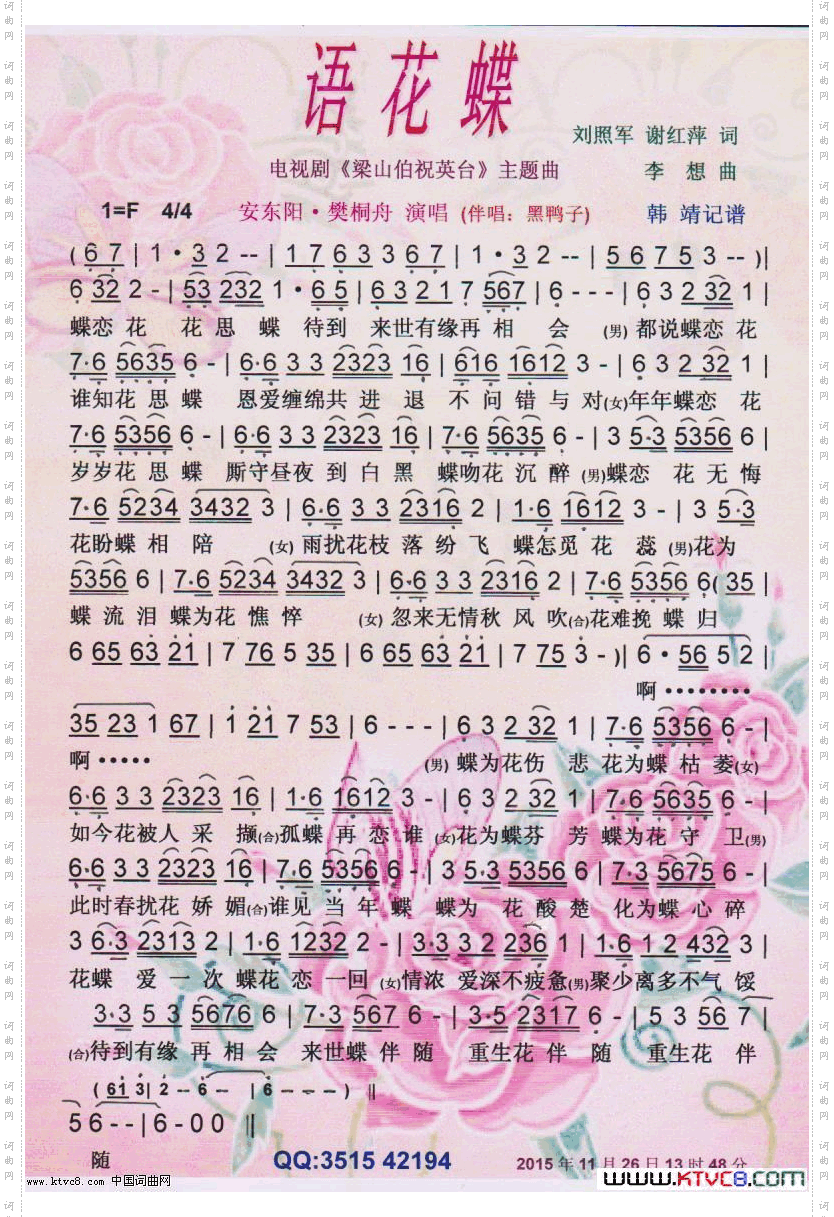 语花蝶
刘照军 谢红萍 词
电视剧《梁山伯祝英台》主题曲 李 想 曲
1=F 4/4 安东阳·樊桐舟 演唱 (伴唱：黑鸭子) 韩 靖记谱
( 6 7 | 1 · 3 2 -- | 1 7 6 3 3 6 7 | 1 · 3 2 -- | 5 6 7 5 3 -- )|
6 32 2 - | 53 232 1 · 6 5 | 6 3 2 1 7 567 | 6 - - - | 6 3 2 32 1 |
蝶恋 花 花 思 蝶 待到 来世有缘再 相 会 (男) 都说蝶恋 花
7·6 5635 6 - | 6·6 3 3 2323 16 | 616 1612 3 - | 6 3 2 32 1 |
谁知花 思 蝶 恩爱缠绵共 进 退 不 问 错 与 对(女)年年蝶恋 花
7·6 5356 6 - | 6·6 3 3 2323 16 | 7·6 5635 6 - | 3 5·3 5356 6 |
岁岁花 思 蝶 厮守昼夜 到 白 黑 蝶吻花 沉 醉 (男)蝶恋 花 无 悔
7·6 5234 3432 3 | 6·6 3 3 2316 2 | 1·6 1612 3 - | 3 5·3
花盼蝶 相 陪 (女) 雨扰花枝 落 纷 飞 蝶怎觅 花 蕊 (男)花为
5356 6 | 7·6 5234 3432 3 | 6·6 3 3 2316 2 | 7·6 5356 6( 35 |
蝶 流 泪 蝶为花 憔 悴 (女) 忽来无情秋 风 吹(合)花难挽 蝶 归
6 65 63 21 | 7 76 5 35 | 6 65 63 21 | 7 75 3 - )| 6 · 56 5 2 |
啊 ········
35 23 1 67 | 1 21 7 53 | 6 - - - | 6 3 2 32 1 | 7·6 5356 6 - |
啊 ····· (男) 蝶为花伤 悲 花为蝶 枯 萎(女)
6·6 3 3 2323 16 | 1·6 1612 3 - | 6 3 2 32 1 | 7·6 5635 6 - |
如今花被人 采 撷(合)孤蝶 再 恋 谁 (女)花为蝶芬 芳 蝶为花 守 卫(男)
6·6 3 3 2323 16 | 7·6 5356 6 - | 3 5·3 5356 6 | 7·3 5675 6 - |
此时春扰花 娇 媚(合)谁见 当 年 蝶 蝶为 花 酸 楚 化为蝶 心 碎
3 6·3 2313 2 | 1·6 1232 2 - | 3·3 3 2 236 1 | 1·6 1 2 432 3 |
花蝶 爱 一 次 蝶花 恋 一 回 (女)情浓 爱深不疲惫(男)聚少离多不气 馁
3·3 5 3 5676 6 | 7·3 567 6 - | 3·5 2317 6 - | 5 3 56 7 |
(合)待到有缘 再 相 会 来世蝶 伴 随 重生花 伴 随 重生花 伴
( 61 3| 2 -- 6 -- | 6 -- -- ) ‖
5 6 - - | 6 - 0 0 ‖
随
QQ:3515 42194 2015 年 11 月 26 日 13 时 48 分
www.ktvc8.com 中国词曲网 www.KTVC8.com
词曲网